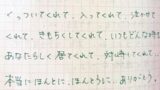 くっついてくれて、入ってくれて、泣かせて
くれて、きもちくしてくれて、いつもどんな時も
あたらしく 居てくれて、対峙してくれて…
本当に ほんとに、ほんとうに、ありがとう。